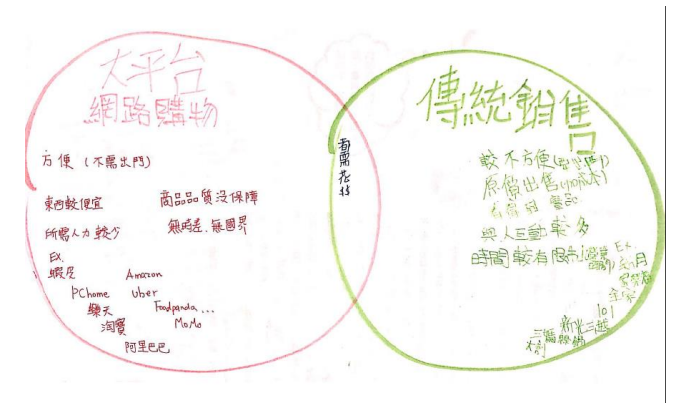 大平台
網路購物
方便(不需出門)
東西較便宜
商品品質沒保障
所需人力較少
無時差、無國界
EX.
蝦皮
Amazon
PChome
Uber
樂天
Foodpanda...
淘寶
MoMo
阿里巴巴
都需花錢
傳統銷售
較不方便
原價出售
與人互動較多
時間較有限制
Ex.
全家
101
新光三越